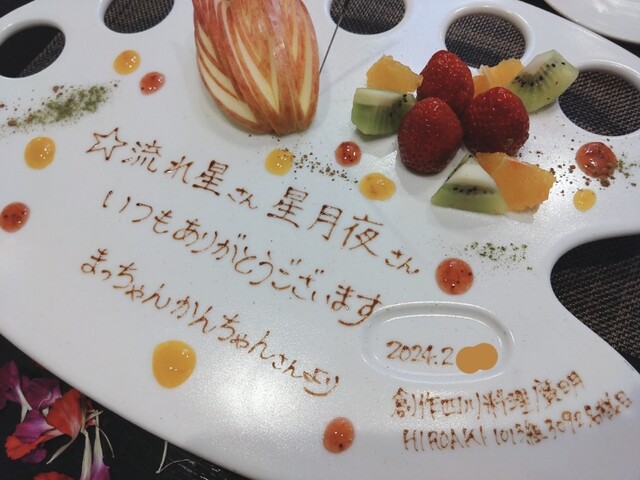 ☆流れ星さん 星月夜さん
いつもありがとうございます
まっちゃんかんちゃんさんより
2024.2
創作四川料理
HIROAKI